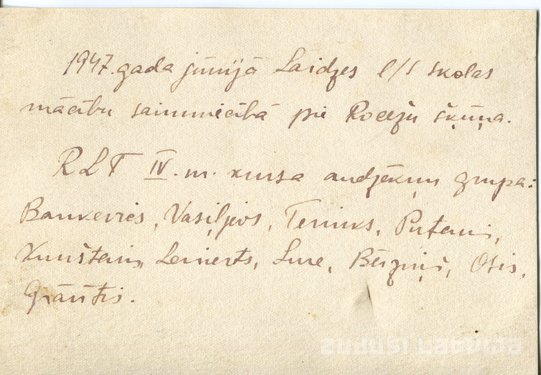 1947. gada jūnijā Laidzes l/s skolas
mācību saimniecībā pie Rocežu šķūņa.
RLT IV. m. kursa audzēkņu grupa:
Bankevics, Vasiļjevs, Teniks, Putans,
Leinerts, Sure, Bērziņš, Osis,
Grāvītis.